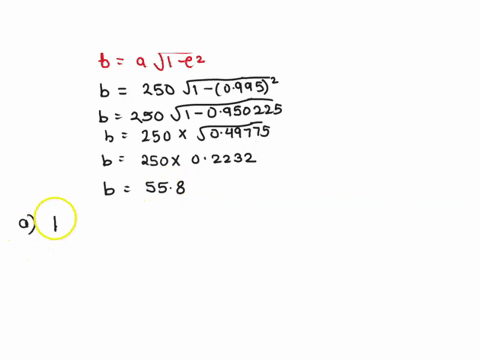 b = a √1-e²
b = 250 √1-(0.995)²
b = 250 √1-0.950225
b = 250 × √0.49775
b = 250 × 0.2232
b = 55.8
a) 1